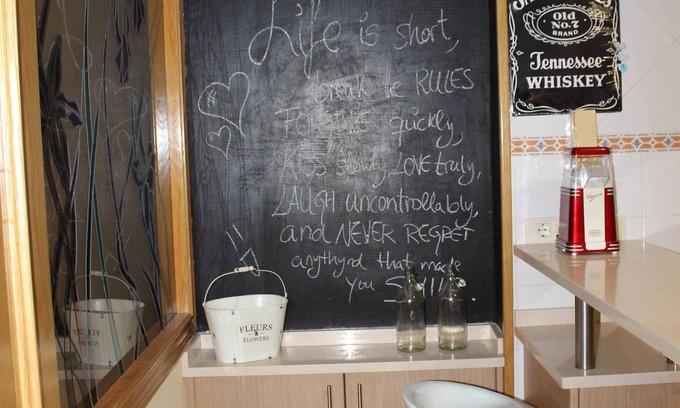 Life is short,
break the RULES
FORGIVE quickly,
KISS slowly, LOVE truly,
LAUGH uncontrollably,
and NEVER REGRET
that made
you SMILE.
FLEURS
&
FLOWERS
Old
No.7
BRAND
Tennessee
WHISKEY